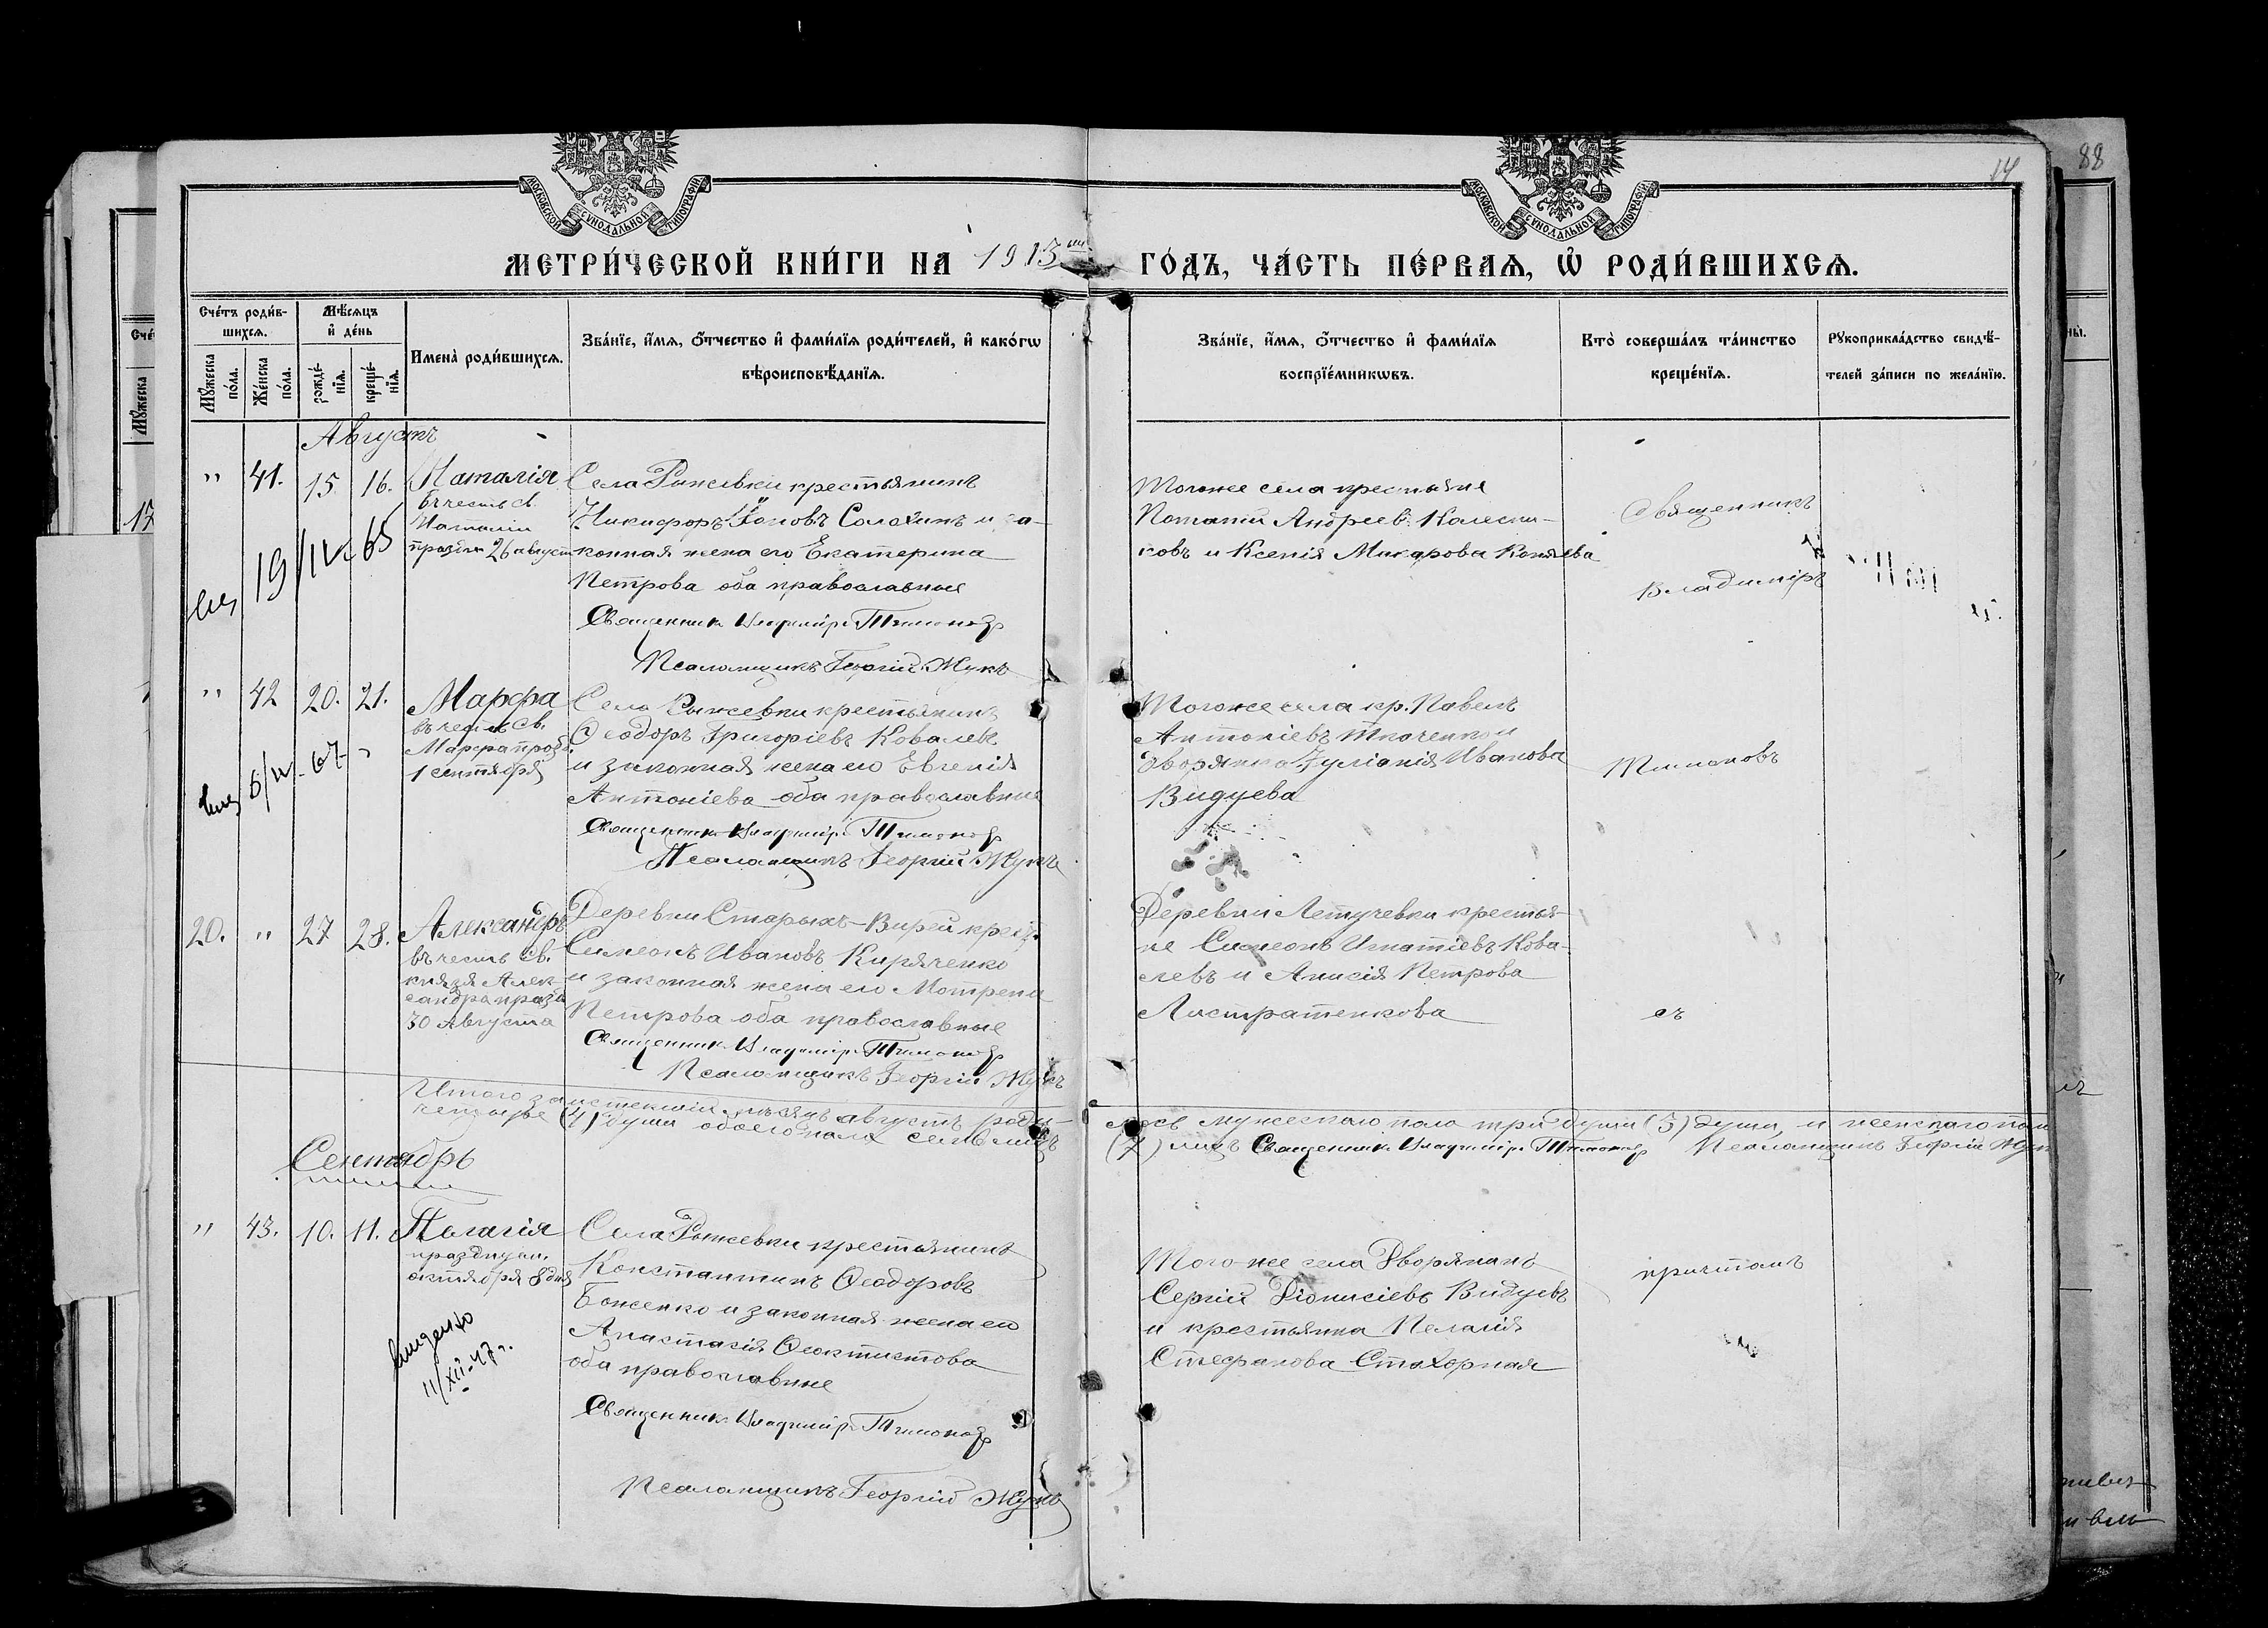 88
14
МОСКОВСКОЙ СУНОДАЛЬНОЙ ТИПОГРАФІИ
МОСКОВСКОЙ СУНОДАЛЬНОЙ ТИПОГРАФІИ
МЕТРИ́ЧЕСКОЙ КНИ́ГИ НА 1913 ГО́ДЪ, ЧА́СТЬ ПЕ́РВАѦ, Ѡ҆ РОДИ́ВШИХСѦ.
Сче́тъ роди́в-
шихсѧ.
Мꙋ́жеска по́ла.
Же́нска по́ла.
Мѣ́сѧцъ
и҆ де́нь
рожде́-
нїѧ.
креще́-
нїѧ.
И҆мена̀ роди́вшихсѧ.
Зва́нїе, и҆́мѧ, ѻ҆́тчество и҆ фами́лїѧ роди́телей, и҆ како́гѡ
вѣроисповѣ́данїѧ.
Зва́нїе, и҆́мѧ, ѻ҆́тчество и҆ фами́лїѧ
воспрїе́мникѡвъ.
Кто̀ соверша́лъ та́инство
креще́нїѧ.
Рꙋкоприкла́дство свидѣ́-
телей за́писи по жела́нїю.
Августъ
" 41. 15. 16. Наталія
въ честь св.
Наталіи
праздн 26 август
19/IV-65
Села Рыжевки крестьянинъ
Никифоръ Іоновъ Солохинъ и за-
конная жена его Екатерина
Петрова оба православные
Священникъ Владиміръ Тимоновъ
Псаломщикъ Георгій Жукъ
Тогоже села крестьяне
Потапій Андреевъ Колесни-
ковъ и Ксенія Макарова Коняева
Священникъ
Владиміръ
" 42 20. 21. Марфа
въ честь св.
Марфа празд.
1 сентября
Села Рыжевки крестьянинъ
Ѳеодоръ Григоріевъ Ковалевъ
и законная жена его Евгенія
Антоніева оба православные
Священникъ Владиміръ Тимоновъ
Псаломщикъ Георгій Жукъ
Тогоже села кр. Павелъ
Антоніевъ Ткаченко и
дворянка Іуліанія Иванова
Видуева
Тимоновъ
20. " 27 28. Александръ
въ честь св.
князя Алек-
сандра празд
30 Августа
Деревни Старыхъ-Вирей крест.
Симеонъ Ивановъ Киряченко
и законная жена его Мотрена
Петрова оба православные
Священникъ Владиміръ Тимоновъ
Псаломщикъ Георгій Жукъ
Деревни Летучевки крестья-
не Симеонъ Игнатіевъ Кова-
левъ и Анисія Петрова
Листратенкова
съ
Итого за истекшій мѣсяцъ августъ роди-
лось мужескаго пола три души (3) души, и женскаго пола
четыре (4) души обоего пола семь лицъ
(7) лицъ Священникъ Владиміръ Тимоновъ Псаломщикъ Георгій Жукъ
Сентябрь
" 43. 10. 11. Пелагія
празднуем.
октября 8 дня
11/XII-47 г.
Села Рыжевки крестьянинъ
Константинъ Ѳеодоровъ
Боженко и законная жена его
Анастасія Ѳеоктистова
оба православные
Священникъ Владиміръ Тимоновъ
Псаломщикъ Георгій Жукъ
Того же села Дворянинъ
Сергій Діонисіевъ Видуевъ
и крестьянка Пелагія
Стефанова Стахорная
причтомъ